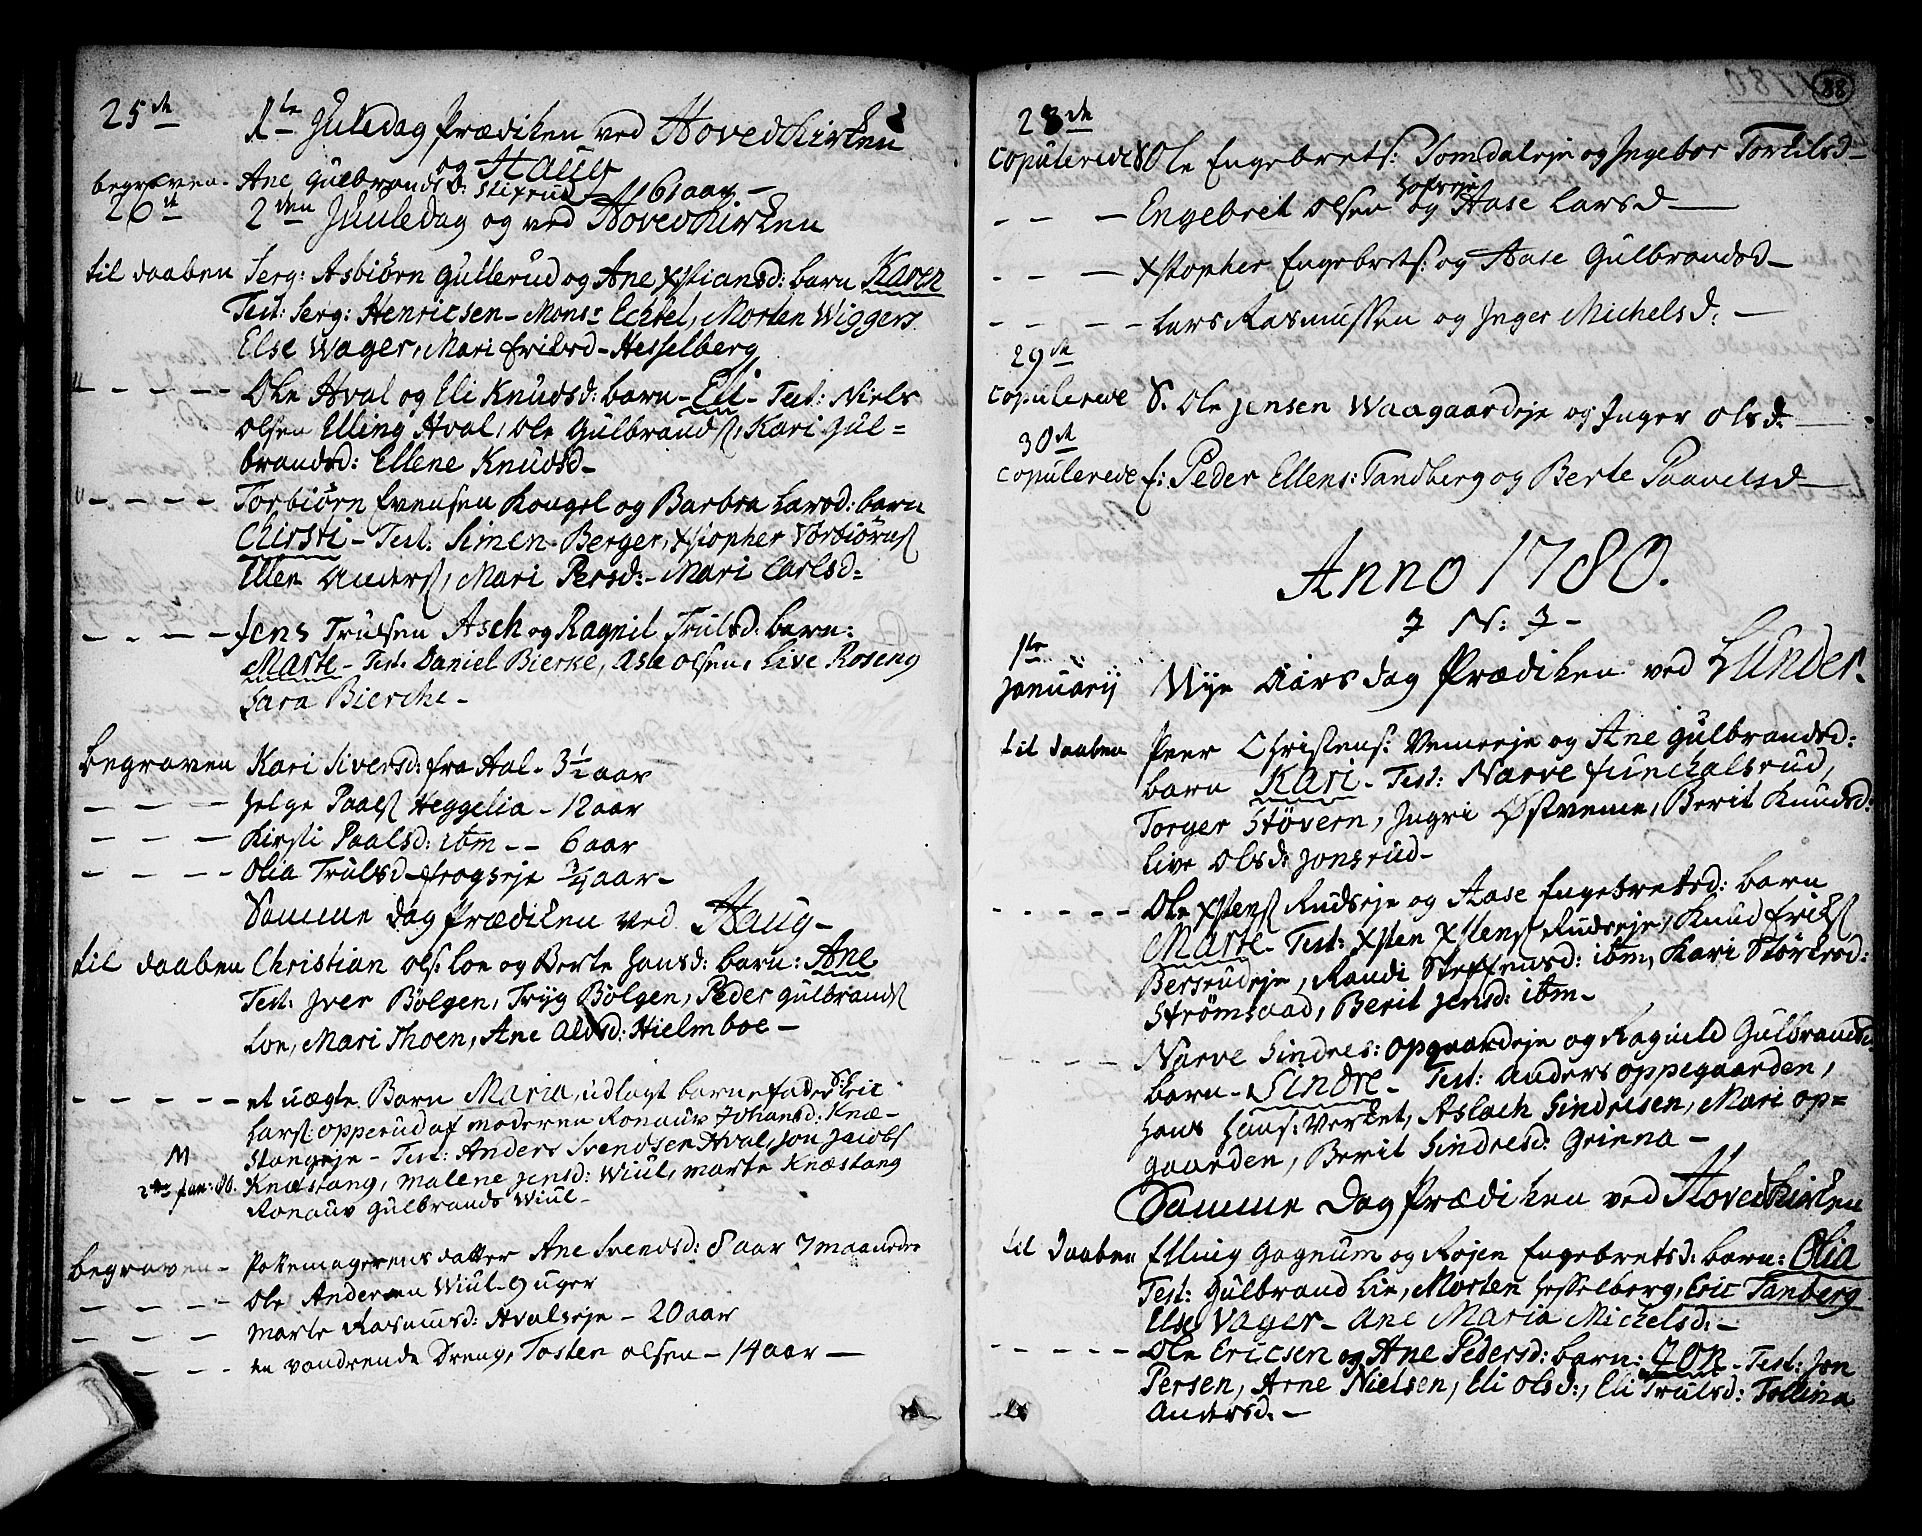 25de
1te Juledag Prædiken ved Hovedkirken
og Haug
begraven - Ane Gulbrandsd: Stifrud 61 aar -
26de 2den Juuledag og ved Hovedkirken
til daaben Serg: Asbiørn Gullerud og Ane Xstiansd: barn Karen
Test: Serg: Henricsen - Monsr Echtel, Morten Wiggers
Else Wager, Mari Eriksd - Hesselberg
- - - - Ole Hval og Eli Knudsd: barn - Eli - Test: Niels
Olsen Elling Hval, Ole Gulbrands, Kari Gul=
brandsd: Ellene Knudsd -
- - - - Torbiørn Evensen Kongel og Barbra Larsd: barn
Chirsti - Test: Simen Berger, Xstopher Torbiørns
Ellen Anders, Mari Persd: - Mari Carlsd=
- - - - Jens Trulsen Asch og Ragnil Trulsd: barn:
Marte - Test: Daniel Bierke, Asle Olsen, Live Roseng
Sara Bierche -
begraven Kari Siversd: fra Aal - 3 1/2 aar
- - - Helge Paals Heggelia - 12 aar
- - - Kirsti Paalsd: ibm - - 6 aar
- - - - Olia Trulsd - frogseje 3/4 aar -
Samme dag Prædiken ved Haug -
til daaben Christian Ols: Loe og Berte Hansd: barn: Ane
Test: Iver Bølgen, Tryg Bølgen, Peder Gulbrands
Loe, Mari Thoen, Ane Alvsd: Hielmboe -
- - - - - et uægte Barn Maria, udlagt barnefader S: Eric
Hars: opperud af moderen Ronauv Johansd: Knæ-
Stangeje - Test: Anders Svendsen Hval, Jon Jacobs
M
2den Jan: 80. Knæstang, Malene Jensd: Wiul, Marte Knæstang
Ronauv Gulbrands Wiul -
begraven - Pottemagerens datter Ane Svendsd: 8 aar 7 maaneder
- - - - Ole Andersen Wiul - 9 uger
- - - Marte Rasmusd: Hvalseje - 20 aar
- - - - en vandrende Dreng, Tosten Olsen - 14 aar -
88
28de
Copulerede S Ole Engebrets: Somdaleje og Ingebor Torkilsd -
Hofseje
- - - Engebret Olsen og Aase Larsd -
- - - Xstopher Engebrets: og Aase Gulbrandsd -
- - - - Lars Rasmussen og Inger Michelsd: -
29de
Copulerede S. Ole Jensen Waagaardeje og Inger Olsd: -
30de
Copulerede f: Peder Ellens: Tandberg og Berte Paavelsd -
Anno 1780.
J N: J -
1te
Januarij Nye Aarsdag Prædiken ved Lunder.
til daaben Peer Christens: Vemeeje og Ane Gulbrandsd:
barn Kari - Test: Narve Junckalsrud,
Torger Støvern, Ingri Østveme, Berit Knudsd:
Live Olsd: Jonsrud -
- - - - - Ole Xstens Rudseje og Aase Engebretsd: barn
Marte - Test: Xsten Xstens Rudseje, Knud Eriks
Bersrudeje, Randi Steffensd: ibm, Kari Størkersd:
Strømsaad, Berit Jensd: ibm -
- - - - - Narve Sindres: Opgaardeje og Ragnild Gulbrandsd:
barn - Sindre - Test: Anders Oppegaarden,
Hans Hans: Verket, Aslach Sindresen, Mari Op=
gaarden, Berit Sindresd: Grinna -
Samme Dag Prædiken ved Hovedkirken
til Daaben Elling Gagnum og Røjen Engebretsd: barn: Olia
Test: Gulbrand Lie, Morten Hesselberg, Eric Tanberg
Else Vager - Ane Maria Michelsd: -
- - - - - Ole Ericsen og Ane Pedersd: barn: Jon - Test: Jon
Persen, Arne Nielsen, Eli Olsd:, Eli Trulsd: Tollina
Andersd: -